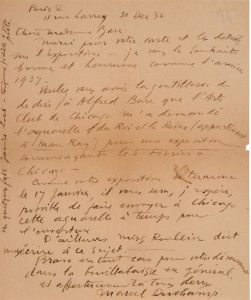 Paris
11 rue Larrey 21 Dec 36
Chère Madame Barr
merci pour votre carte et les détails
sur l'exposition je vous la souhaite
bonne et heureuse comme l'année
1937.
Voulez vous avoir la gentillesse de
de dire à Alfred Barr que l'Arts
Club de Chicago m'a demandé
l'aquarelle "du Roi et la Reine (appartenant
à Man Ray) pour une exposition
commençant le 5 février à
Chicago
Comme votre exposition se termine
le 17 janvier, il vous sera, j'espère,
possible de faire envoyer à Chicago
cette aquarelle à temps pour
l'ouverture
D'ailleurs miss Roullier doit
m'écrire à ce sujet.
Bravo en tout cas pour
dans la en général
et affectueusement à tous deux
Marcel Duchamp